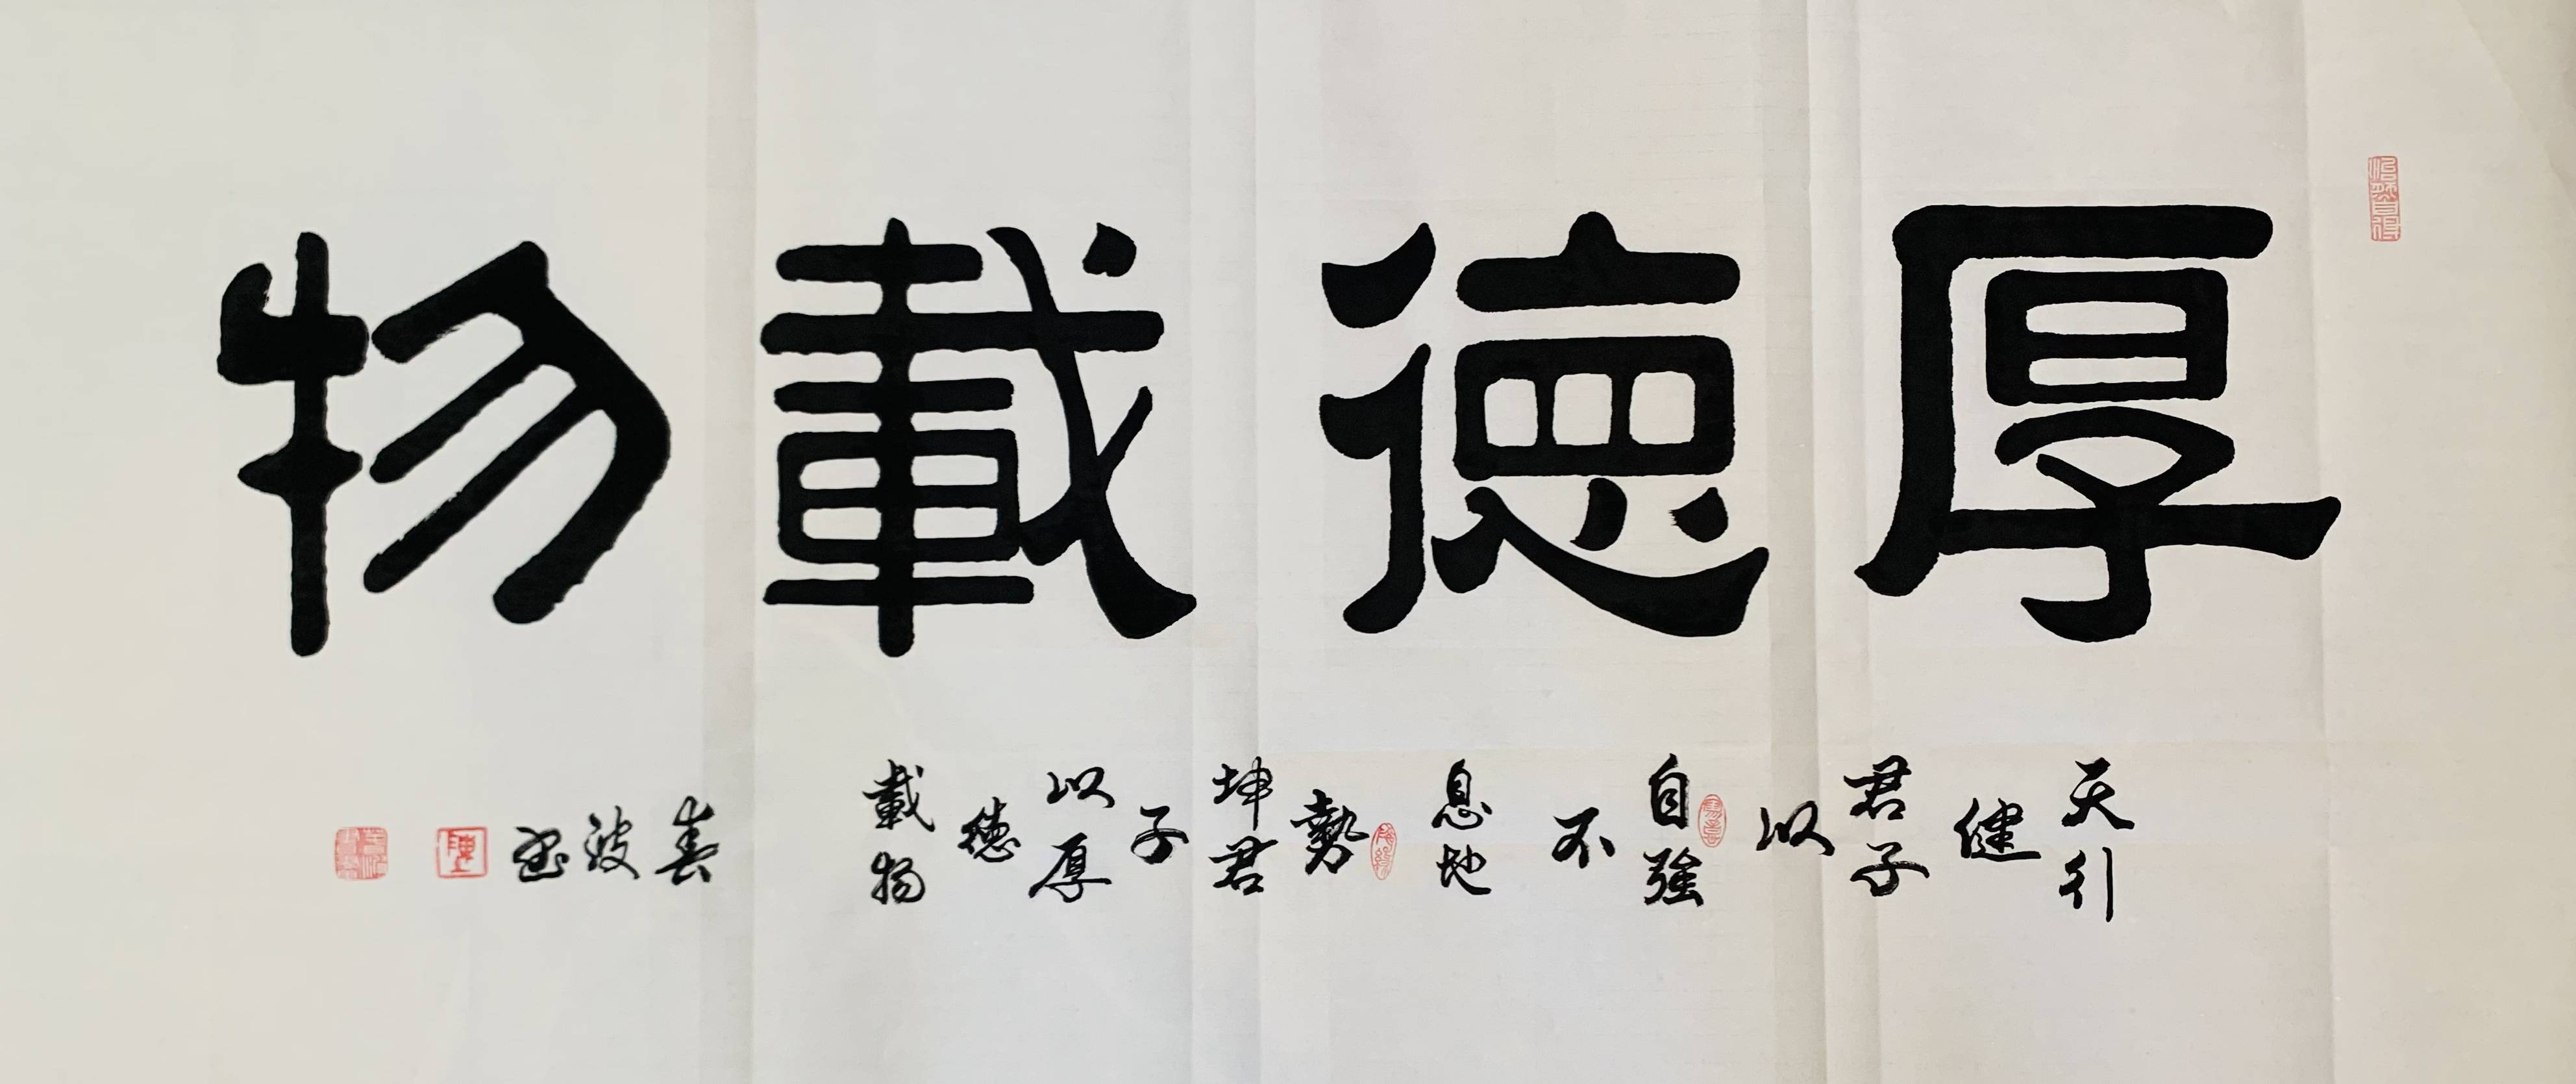 厚德載物
天行健君子以自強不息地勢坤君子以厚德載物
春波书
陳